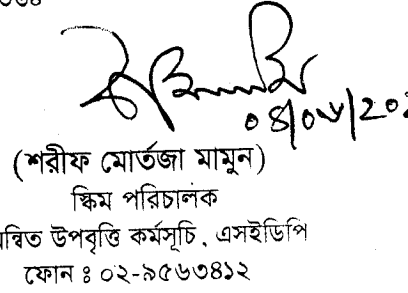 (শরীফ মোর্তজা মামুন)
স্কিম পরিচালক
উপবৃত্তি কর্মসূচি, এসইডিপি
ফোন ঃ ০২-৯৫৬৩৪১২